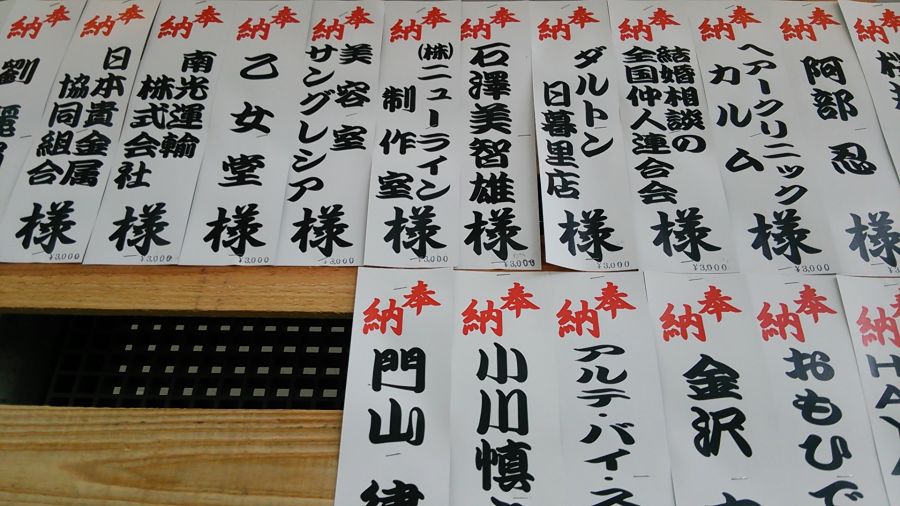 奉納
奉納
阿部 忍 様
¥3,000
奉納
ヘアークリニック
カルム 様
¥3,000
奉納
結婚相談の
全国仲人連合会 様
¥3,000
奉納
ダルトン
日暮里店 様
¥3,000
奉納
石澤美智雄 様
¥3,000
奉納
(株)ニューライン
制作室 様
¥3,000
奉納
美容室
サングレシア 様
¥3,000
奉納
乙女堂 様
¥3,000
奉納
南光運輸
株式会社 様
¥3,000
奉納
日本貴金属
協同組合 様
¥3,000
奉納
奉納
HAYA
奉納
おもひで
奉納
金沢
奉納
アルテ・バイ・ス
奉納
小川慎
奉納
門山